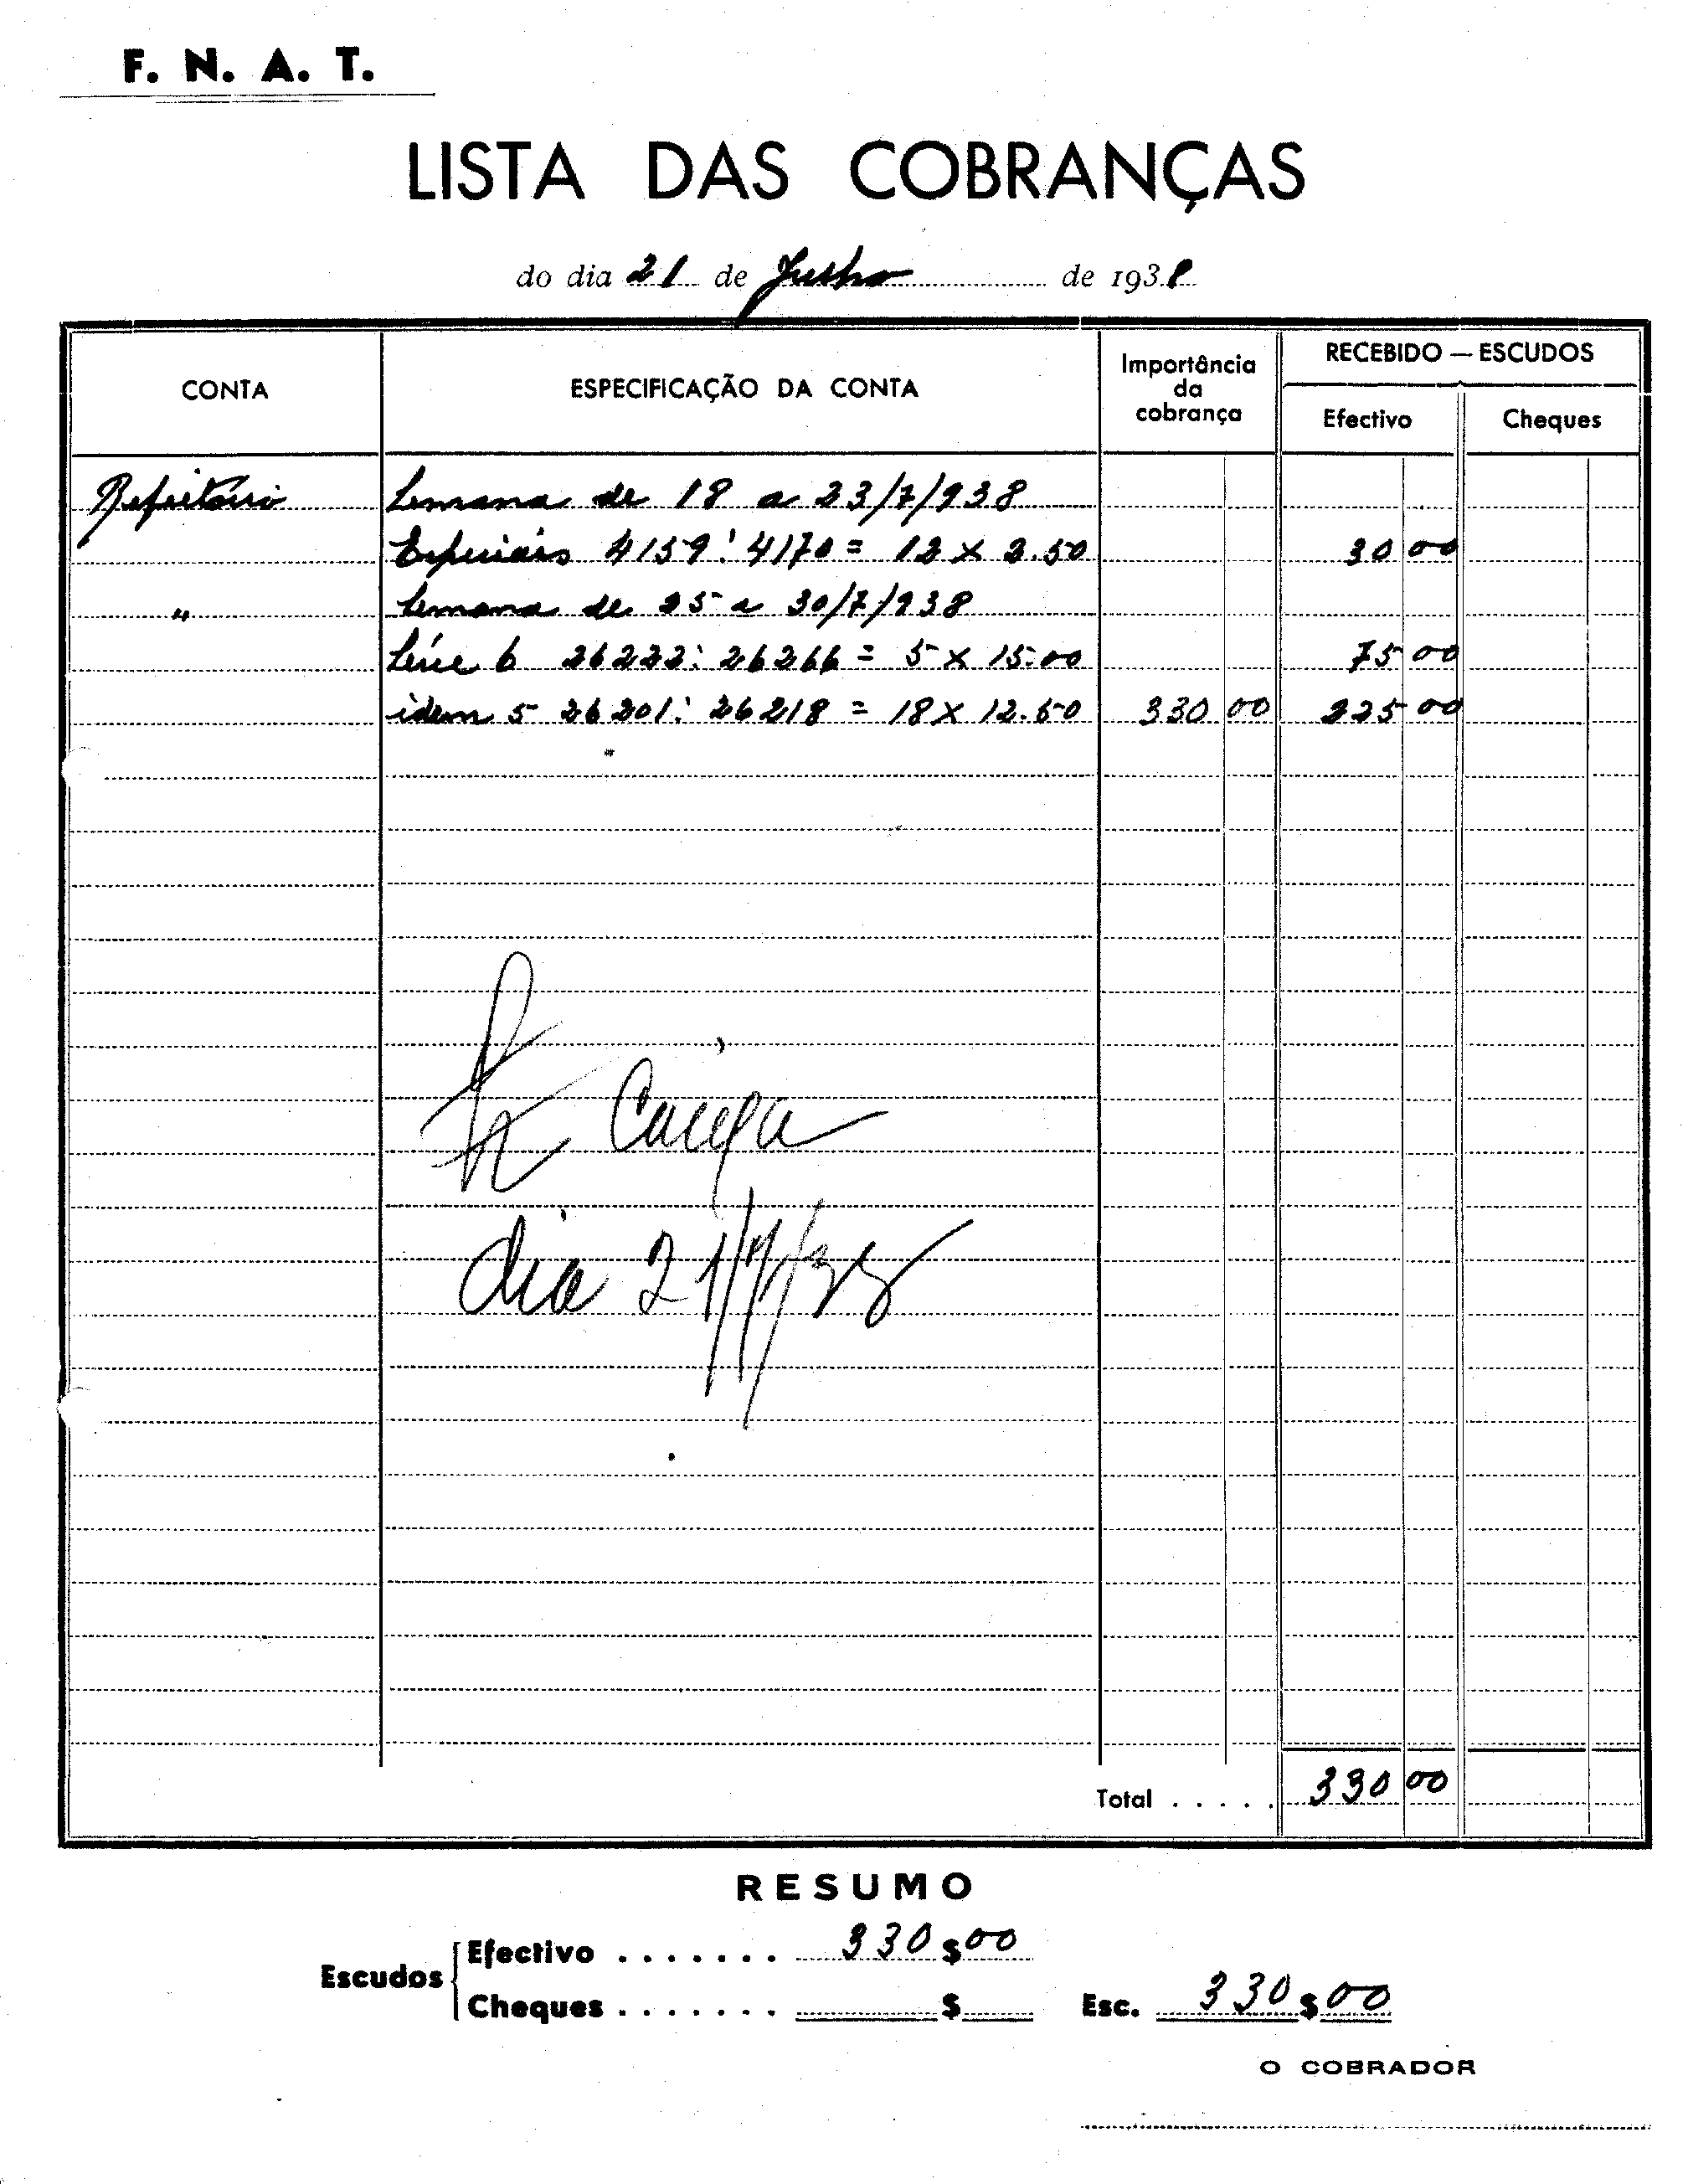 F. N. A. T.
LISTA DAS COBRANÇAS
do dia 21 de Julho de 1938
CONTA
ESPECIFICAÇÃO DA CONTA
Importância
da
cobrança
RECEBIDO — ESCUDOS
Efectivo
Cheques
Refeitório Semana de 18 a 23/7/938
Especiais 4159: 4170 = 12 x 2.50 30 00
" Semana de 25 a 30/7/938
Série 6 : 26266 = 5 x 15.00 75 00
idem 5 26201: 26218 = 18 x 12.50 330 00 225 00
Caixa
dia 21/7/38
Total . . . . . 330 00
RESUMO
Escudos
Efectivo . . . . . . . 330 $ 00
Cheques . . . . . . . $
Esc. 330 $ 00
O COBRADOR